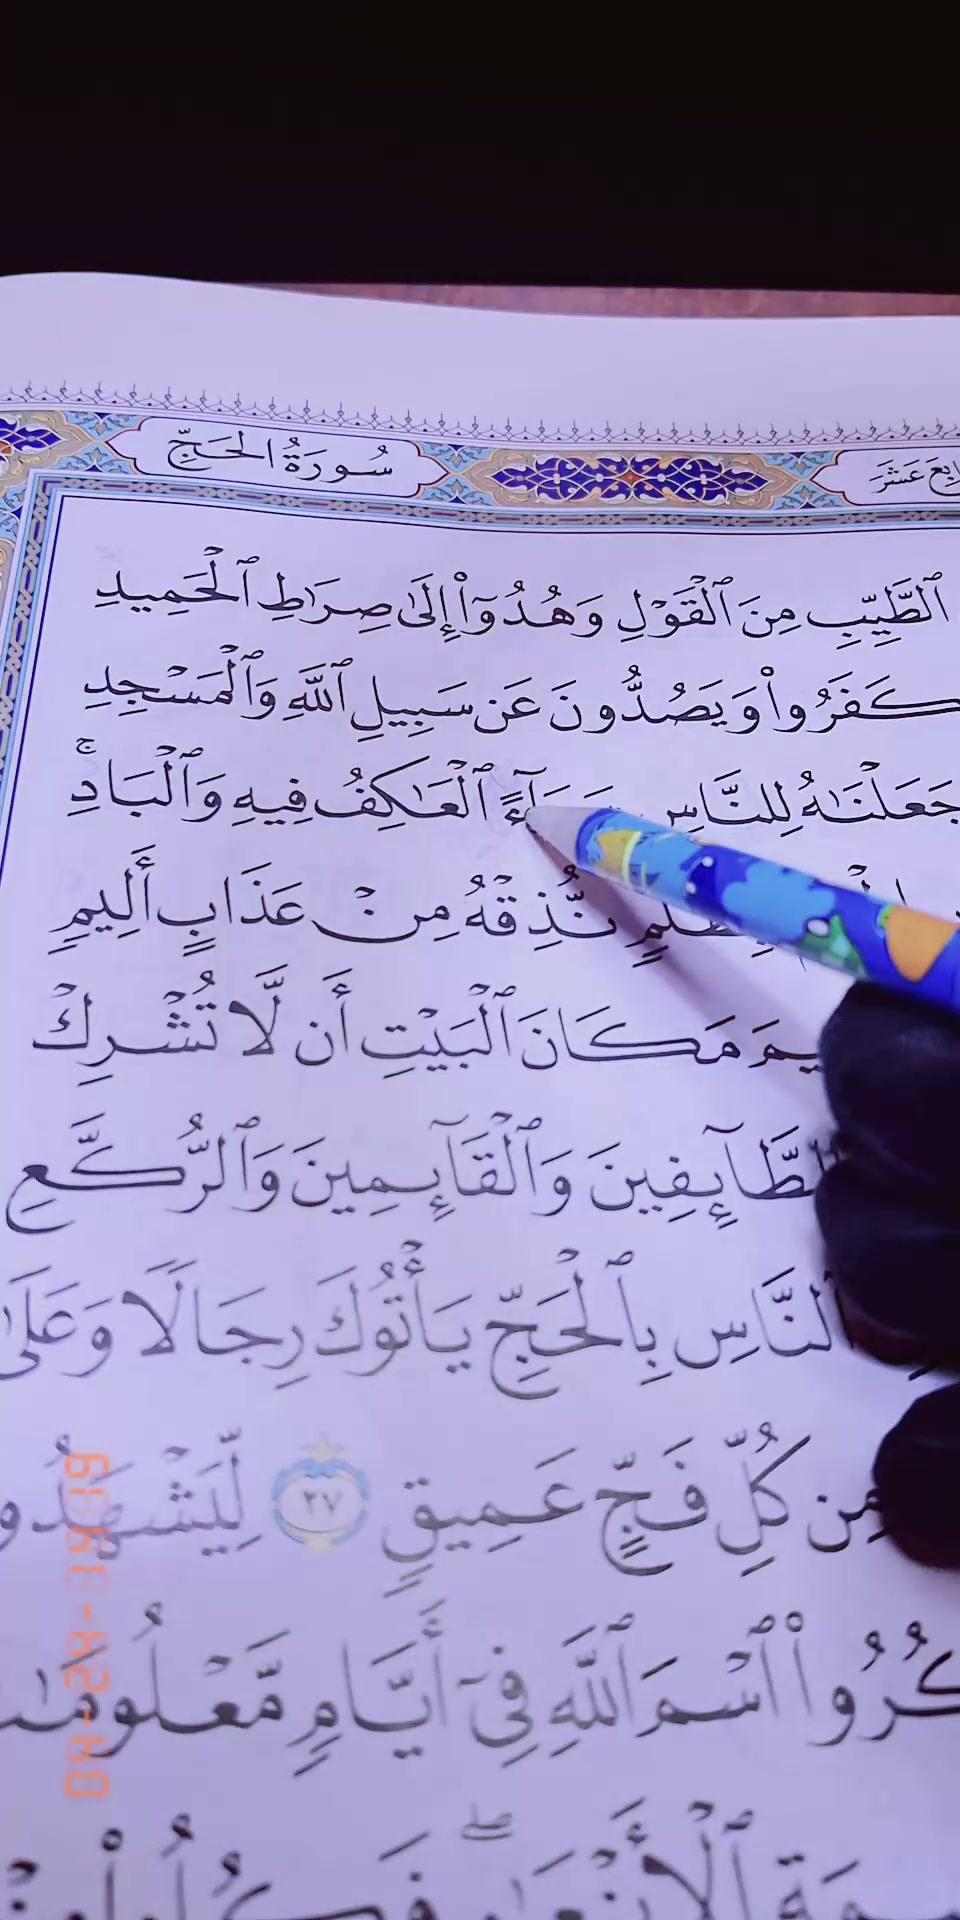 سُورَةُ الحَجِّ
عَشَرَ
ٱلطَّيِّبِ مِنَ ٱلْقَوْلِ وَهُدُوٓا۟ إِلَىٰ صِرَٰطِ ٱلْحَمِيدِ
كَفَرُوا۟ وَيَصُدُّونَ عَن سَبِيلِ ٱللَّهِ وَٱلْمَسْجِدِ
جَعَلْنَٰهُ لِلنَّاسِ سَوَآءً ٱلْعَٰكِفُ فِيهِ وَٱلْبَادِ ۚ
نُّذِقْهُ مِنْ عَذَابٍ أَلِيمٍ
مَكَانَ ٱلْبَيْتِ أَن لَّا تُشْرِكْ
لِلطَّآئِفِينَ وَٱلْقَآئِمِينَ وَٱلرُّكَّعِ
ٱلنَّاسِ بِٱلْحَجِّ يَأْتُوكَ رِجَالًا وَعَلَىٰ
مِن كُلِّ فَجٍّ عَمِيقٍ ٢٧ لِّيَشْهَدُوا۟
ٱسْمَ ٱللَّهِ فِىٓ أَيَّامٍ مَّعْلُومَٰتٍ